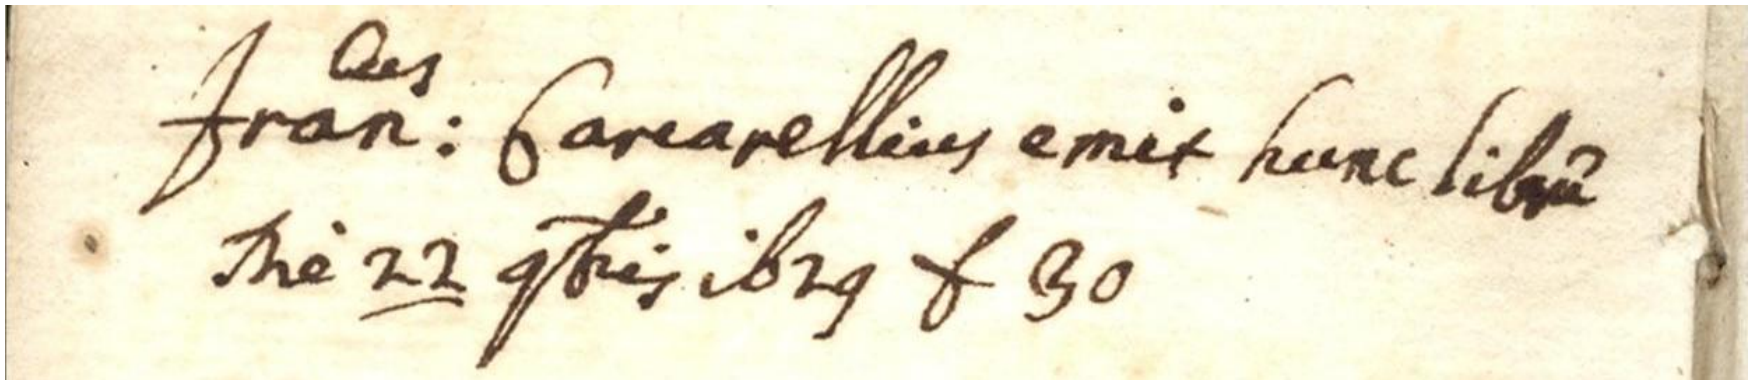 Fran:cus Carcarellius emit hunc librū
Die 22 9bris 1629 f 30